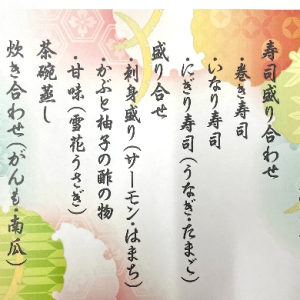 寿司盛り合わせ
・巻き寿司
・いなり寿司
・にぎり寿司(うなぎ・たまご)
盛り合せ
・刺身盛り(サーモン・はまち)
・かぶと柚子の酢の物
・甘味(雪花うさぎ)
茶碗蒸し
炊き合わせ(がんも・南瓜)